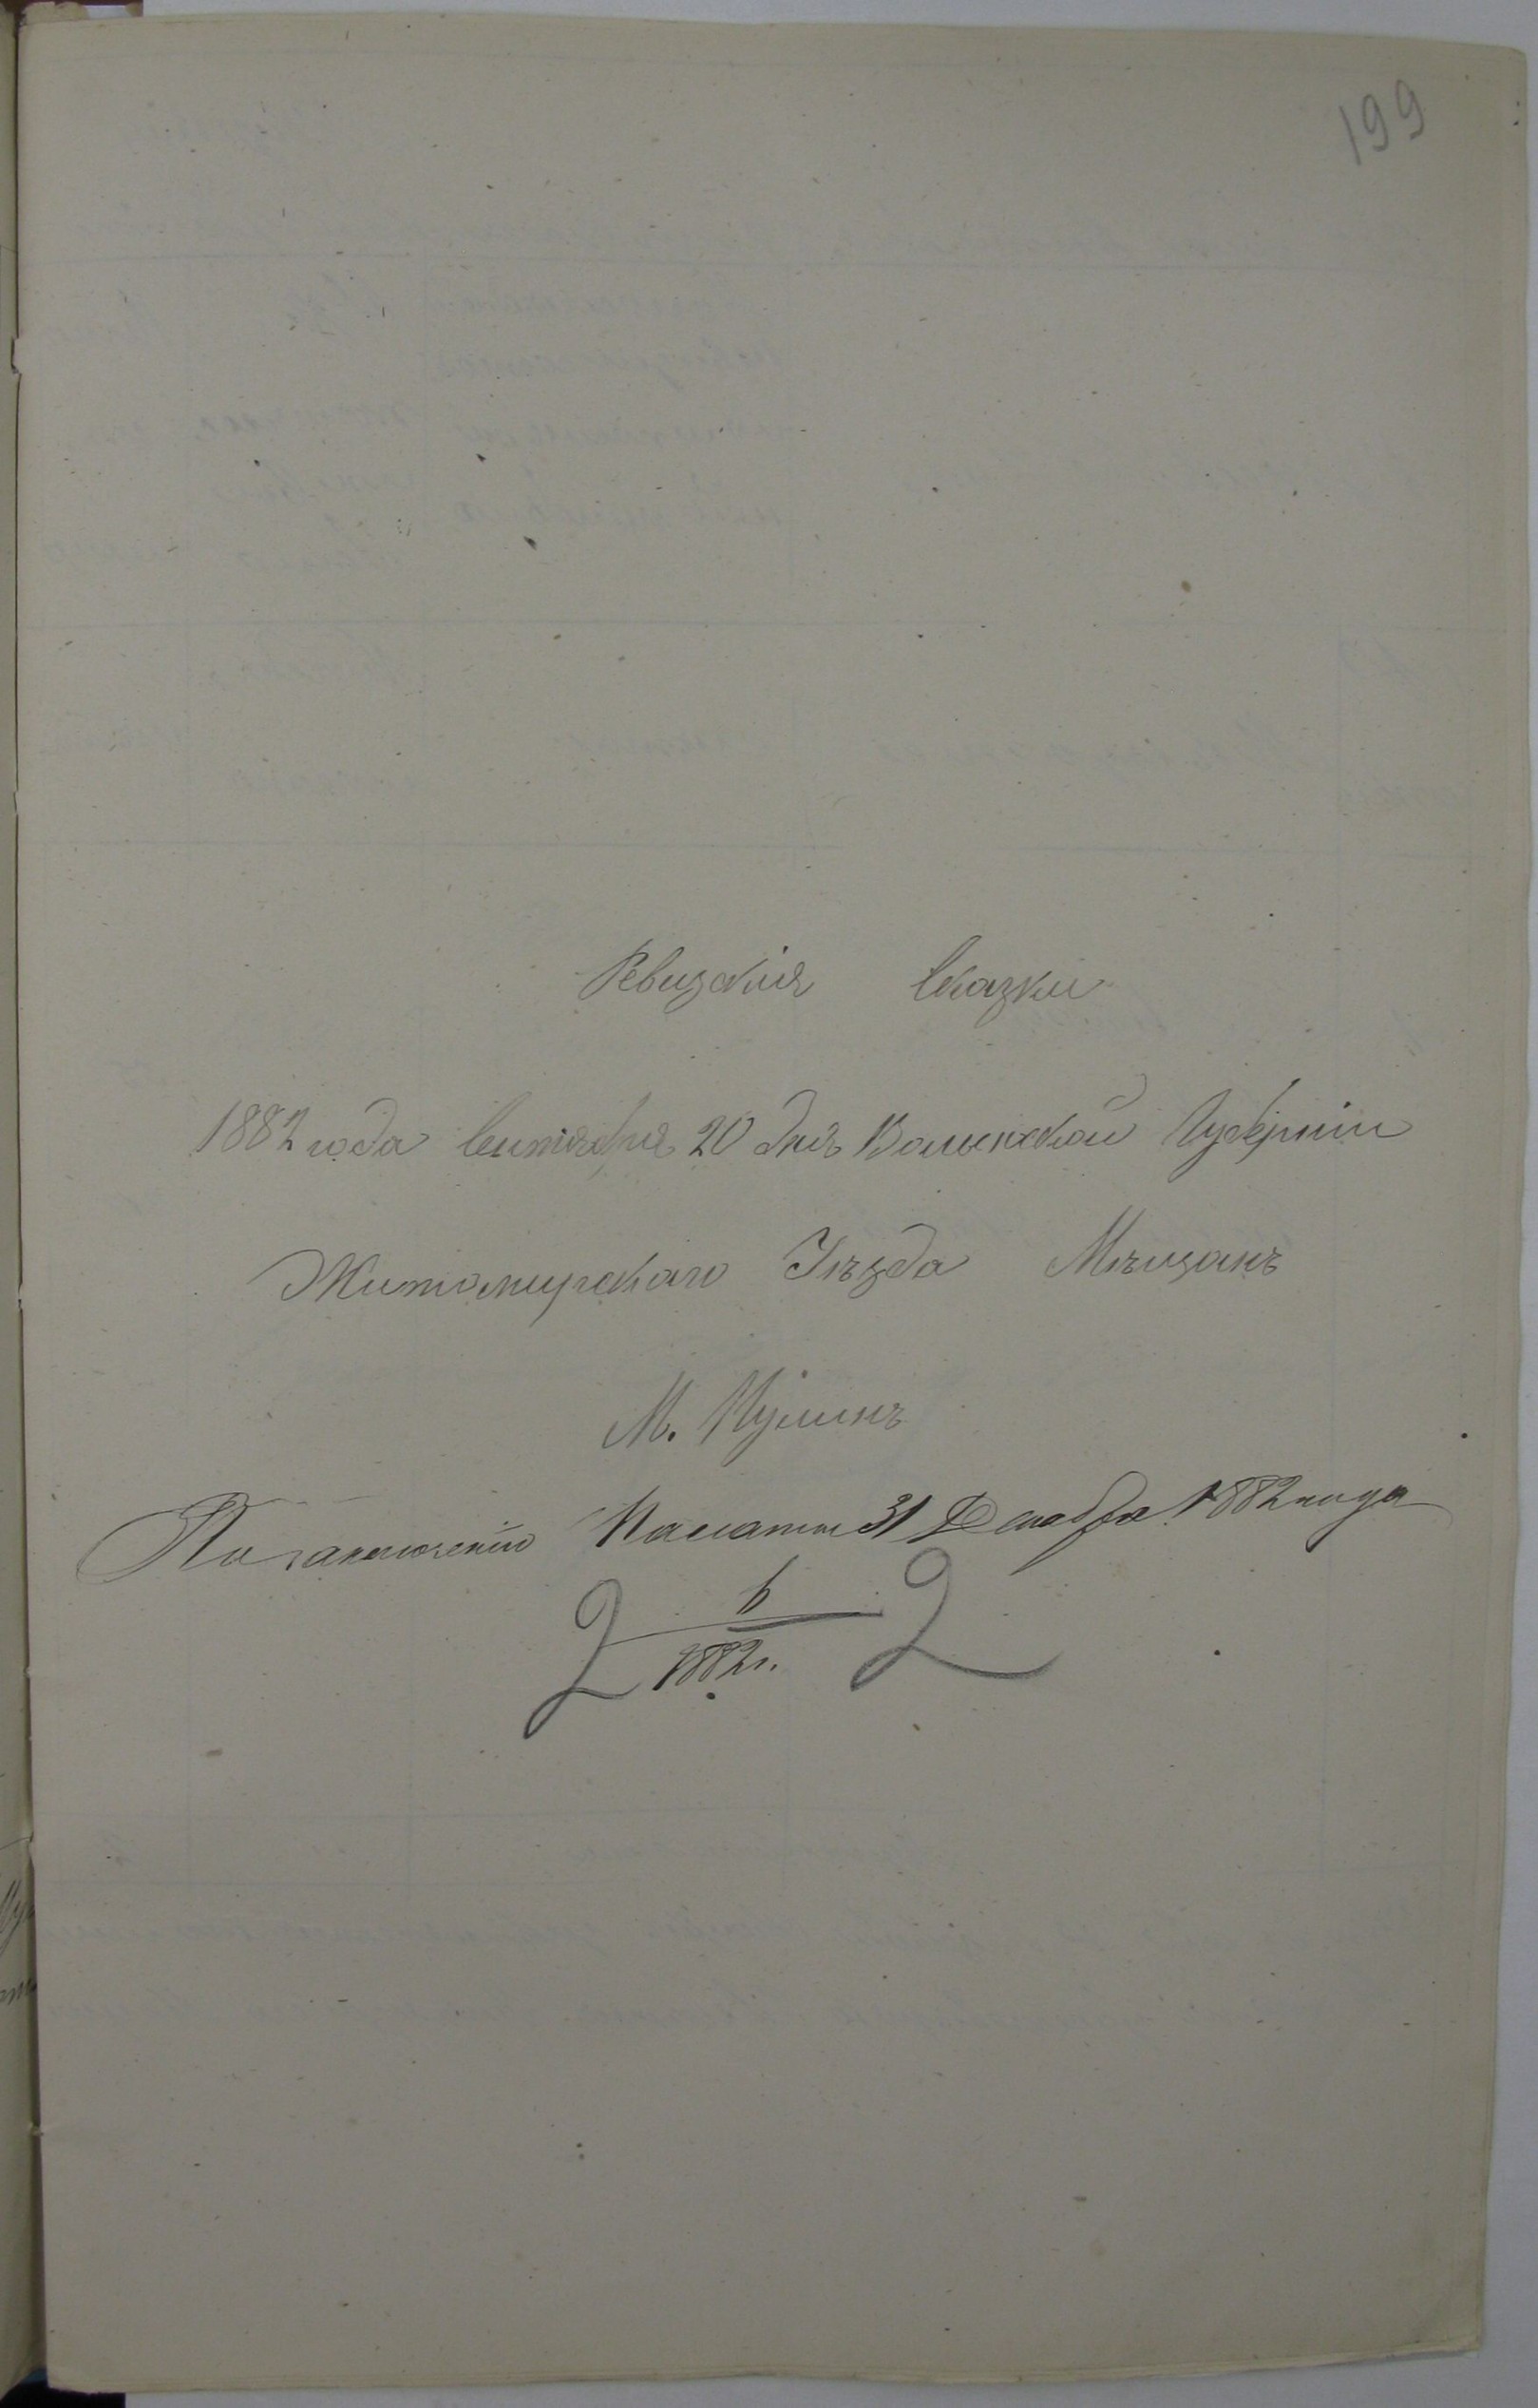 199
Ревизскія Сказки
1882 года Сентября 20 дня Волынской Губерніи
Житомирскаго Уѣзда Мѣщанъ
М. Пулинъ
По заключенію Палаты 31 Декабря 1882 года
2 6 2
1882 г.